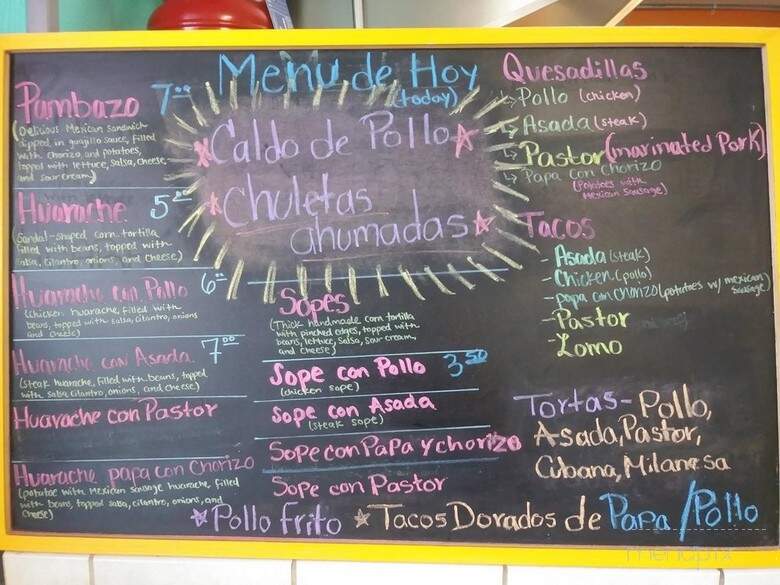 Menu de Hoy
(today)
Caldo de Pollo
Chuletas
ahumadas
Pambazo 7⁰⁰
(Delicious Mexican Sandwich
dipped in guajillo sauce, filled
with chorizo and potatoes,
topped with lettuce, salsa, cheese
and sour cream)
Huarache 5⁰⁰
(Sandal-shaped corn tortilla
filled with beans, topped with
salsa, cilantro, onions, and cheese)
Huarache con Pollo 6⁰⁰
(chicken huarache, filled with
beans, topped with salsa, cilantro, onions
and cheese)
Huarache con Asada 7⁰⁰
(steak huarache, filled with beans, topped
with salsa cilantro, onions, and cheese)
Huarache con Pastor
Huarache papa con Chorizo
(potatoe with Mexican sausage huarache, filled
with beans, topped salsa, cilantro, onions, and
cheese)
Sopes
(Thick handmade corn tortilla
with pinched edges, topped with
beans, lettuce, salsa, sour cream,
and cheese)
Sope con Pollo 3⁵⁰
(chicken sope)
Sope con Asada
(steak sope)
Sope con Papa y chorizo
Sope con Pastor
Quesadillas
Pollo (chicken)
Asada (steak)
Pastor (marinated Pork)
Papa con Chorizo
(Potatoes with
Mexican Sausage)
Tacos
- Asada (steak)
- Chicken (pollo)
- papa con chorizo (potatoes w/ mexican
sausage)
- Pastor
- Lomo
Tortas - Pollo,
Asada, Pastor,
Cubana, Milanesa
Pollo Frito Tacos Dorados de Papa/Pollo
menupix